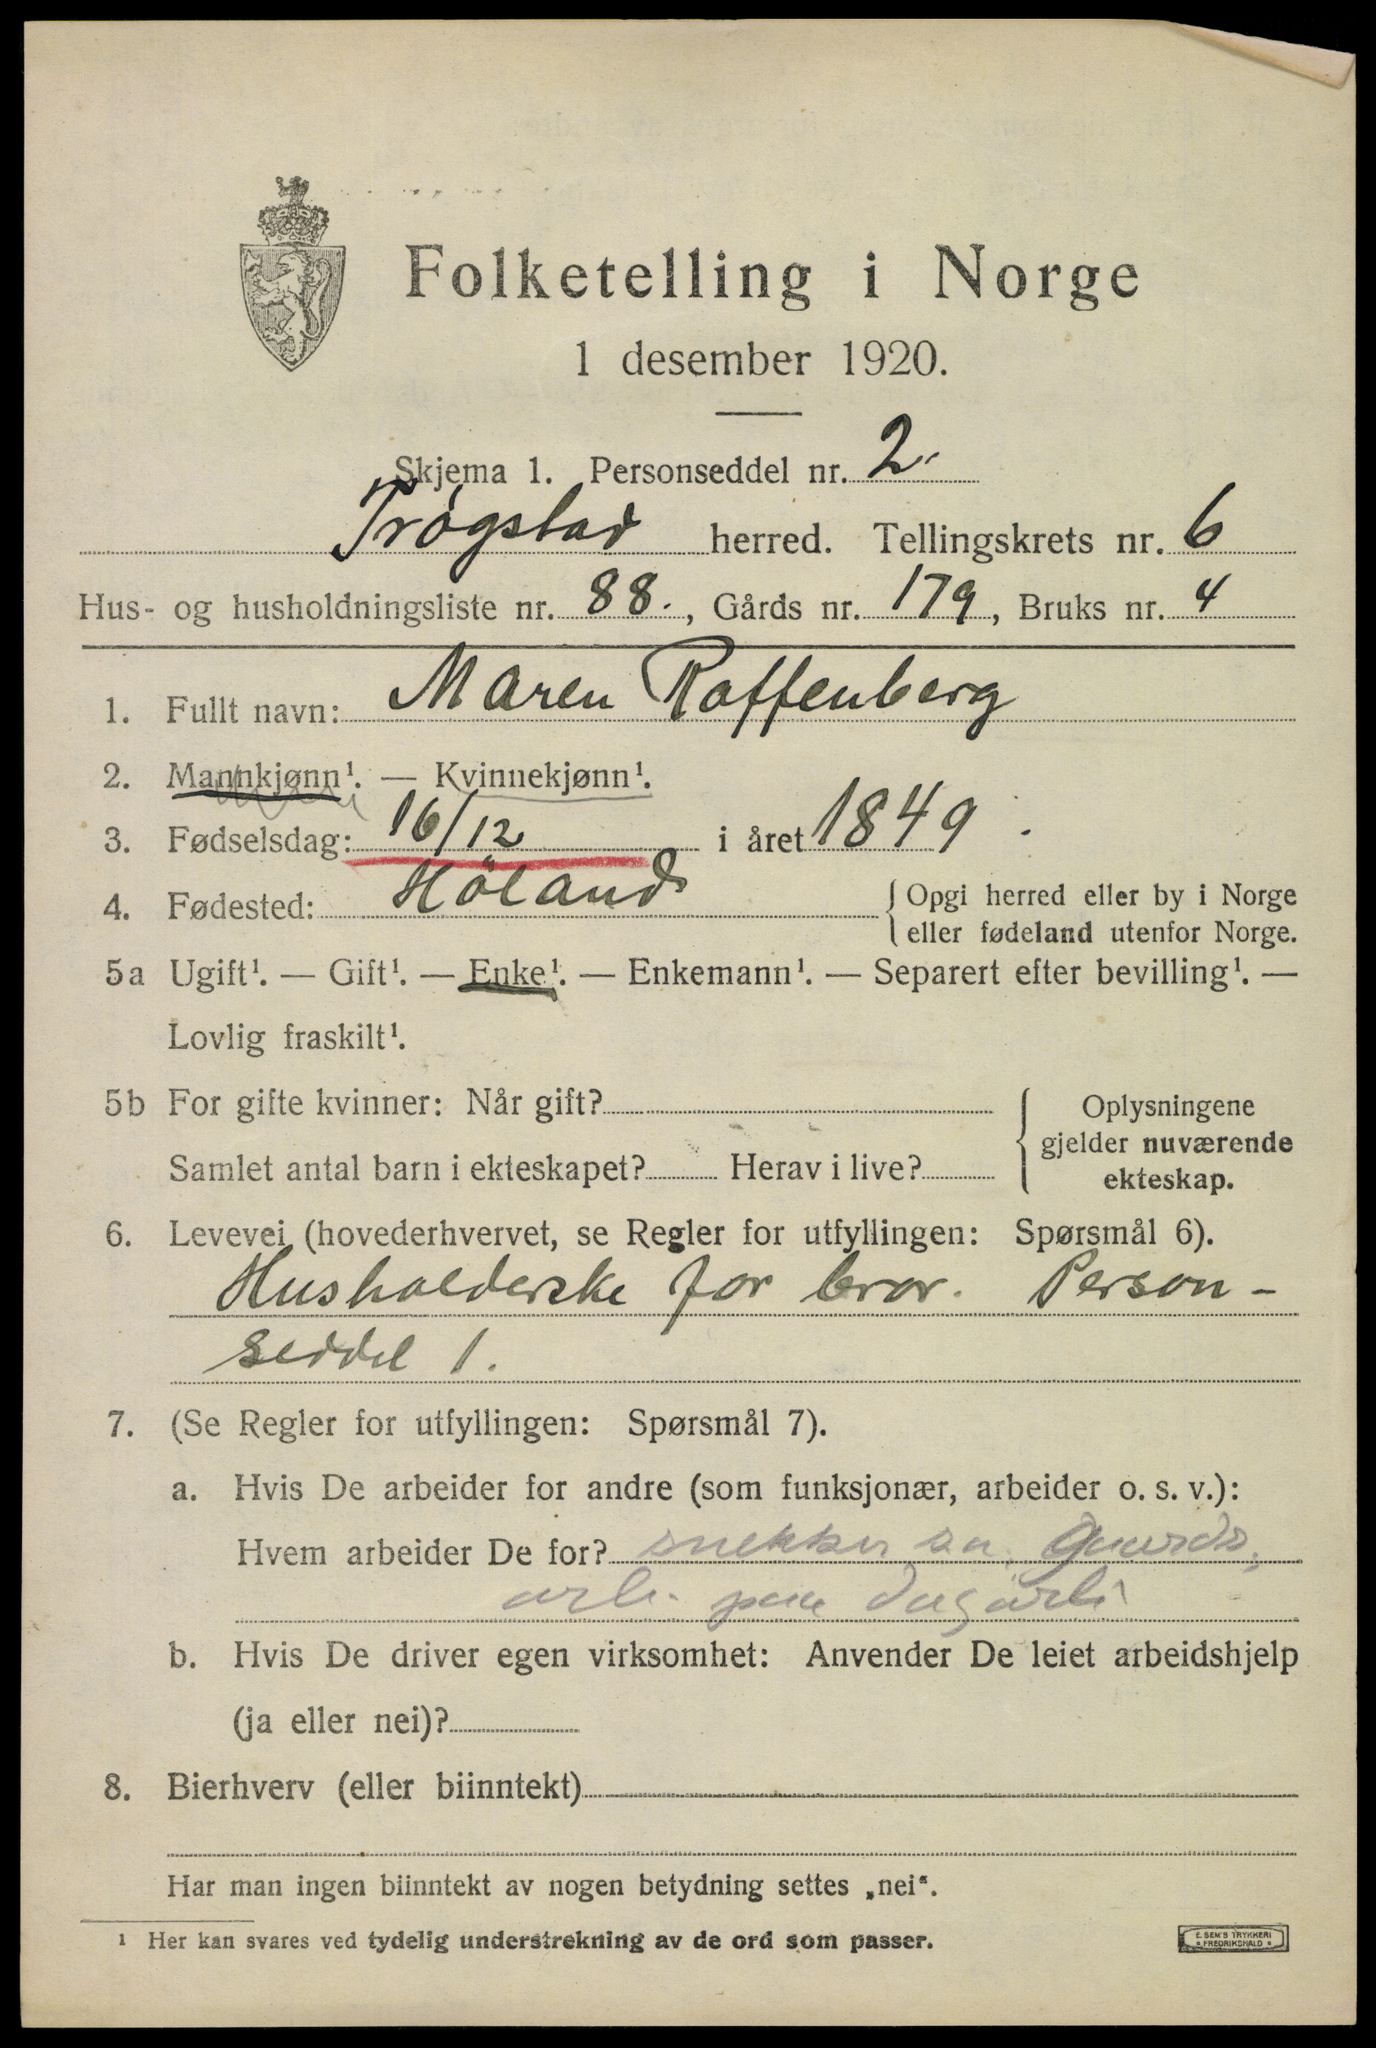 Folketelling i Norge
1 desember 1920.
Skjema 1. Personseddel nr. 2.
Trøgstad herred. Tellingskrets nr. 6
Hus- og husholdningsliste nr. 88., Gårds nr. 179, Bruks nr. 4
1. Fullt navn: Maren Raffenberg
2. Mannkjønn¹. — Kvinnekjønn¹.
3. Fødselsdag: 16/12 i året 1849.
4. Fødested: Höland { Opgi herred eller by i Norge
eller fødeland utenfor Norge.
5a Ugift¹. — Gift¹. — Enke¹. — Enkemann¹. — Separert efter bevilling¹. —
Lovlig fraskilt¹.
5b For gifte kvinner: Når gift? { Oplysningene
gjelder nuværende
Samlet antal barn i ekteskapet? Herav i live?
ekteskap.
6. Levevei (hovederhvervet, se Regler for utfyllingen: Spørsmål 6).
Husholderske for bror. Person-
seddel 1.
7. (Se Regler for utfyllingen: Spørsmål 7).
a. Hvis De arbeider for andre (som funksjonær, arbeider o. s. v.):
Hvem arbeider De for? snekker Gaards
arb. paa dagarb
b. Hvis De driver egen virksomhet: Anvender De leiet arbeidshjelp
(ja eller nei)?
8. Bierhverv (eller biinntekt)
Har man ingen biinntekt av nogen betydning settes „nei“.
¹ Her kan svares ved tydelig understrekning av de ord som passer.
E. SEM'S TRYKKERI
• FREDRIKSHALD •